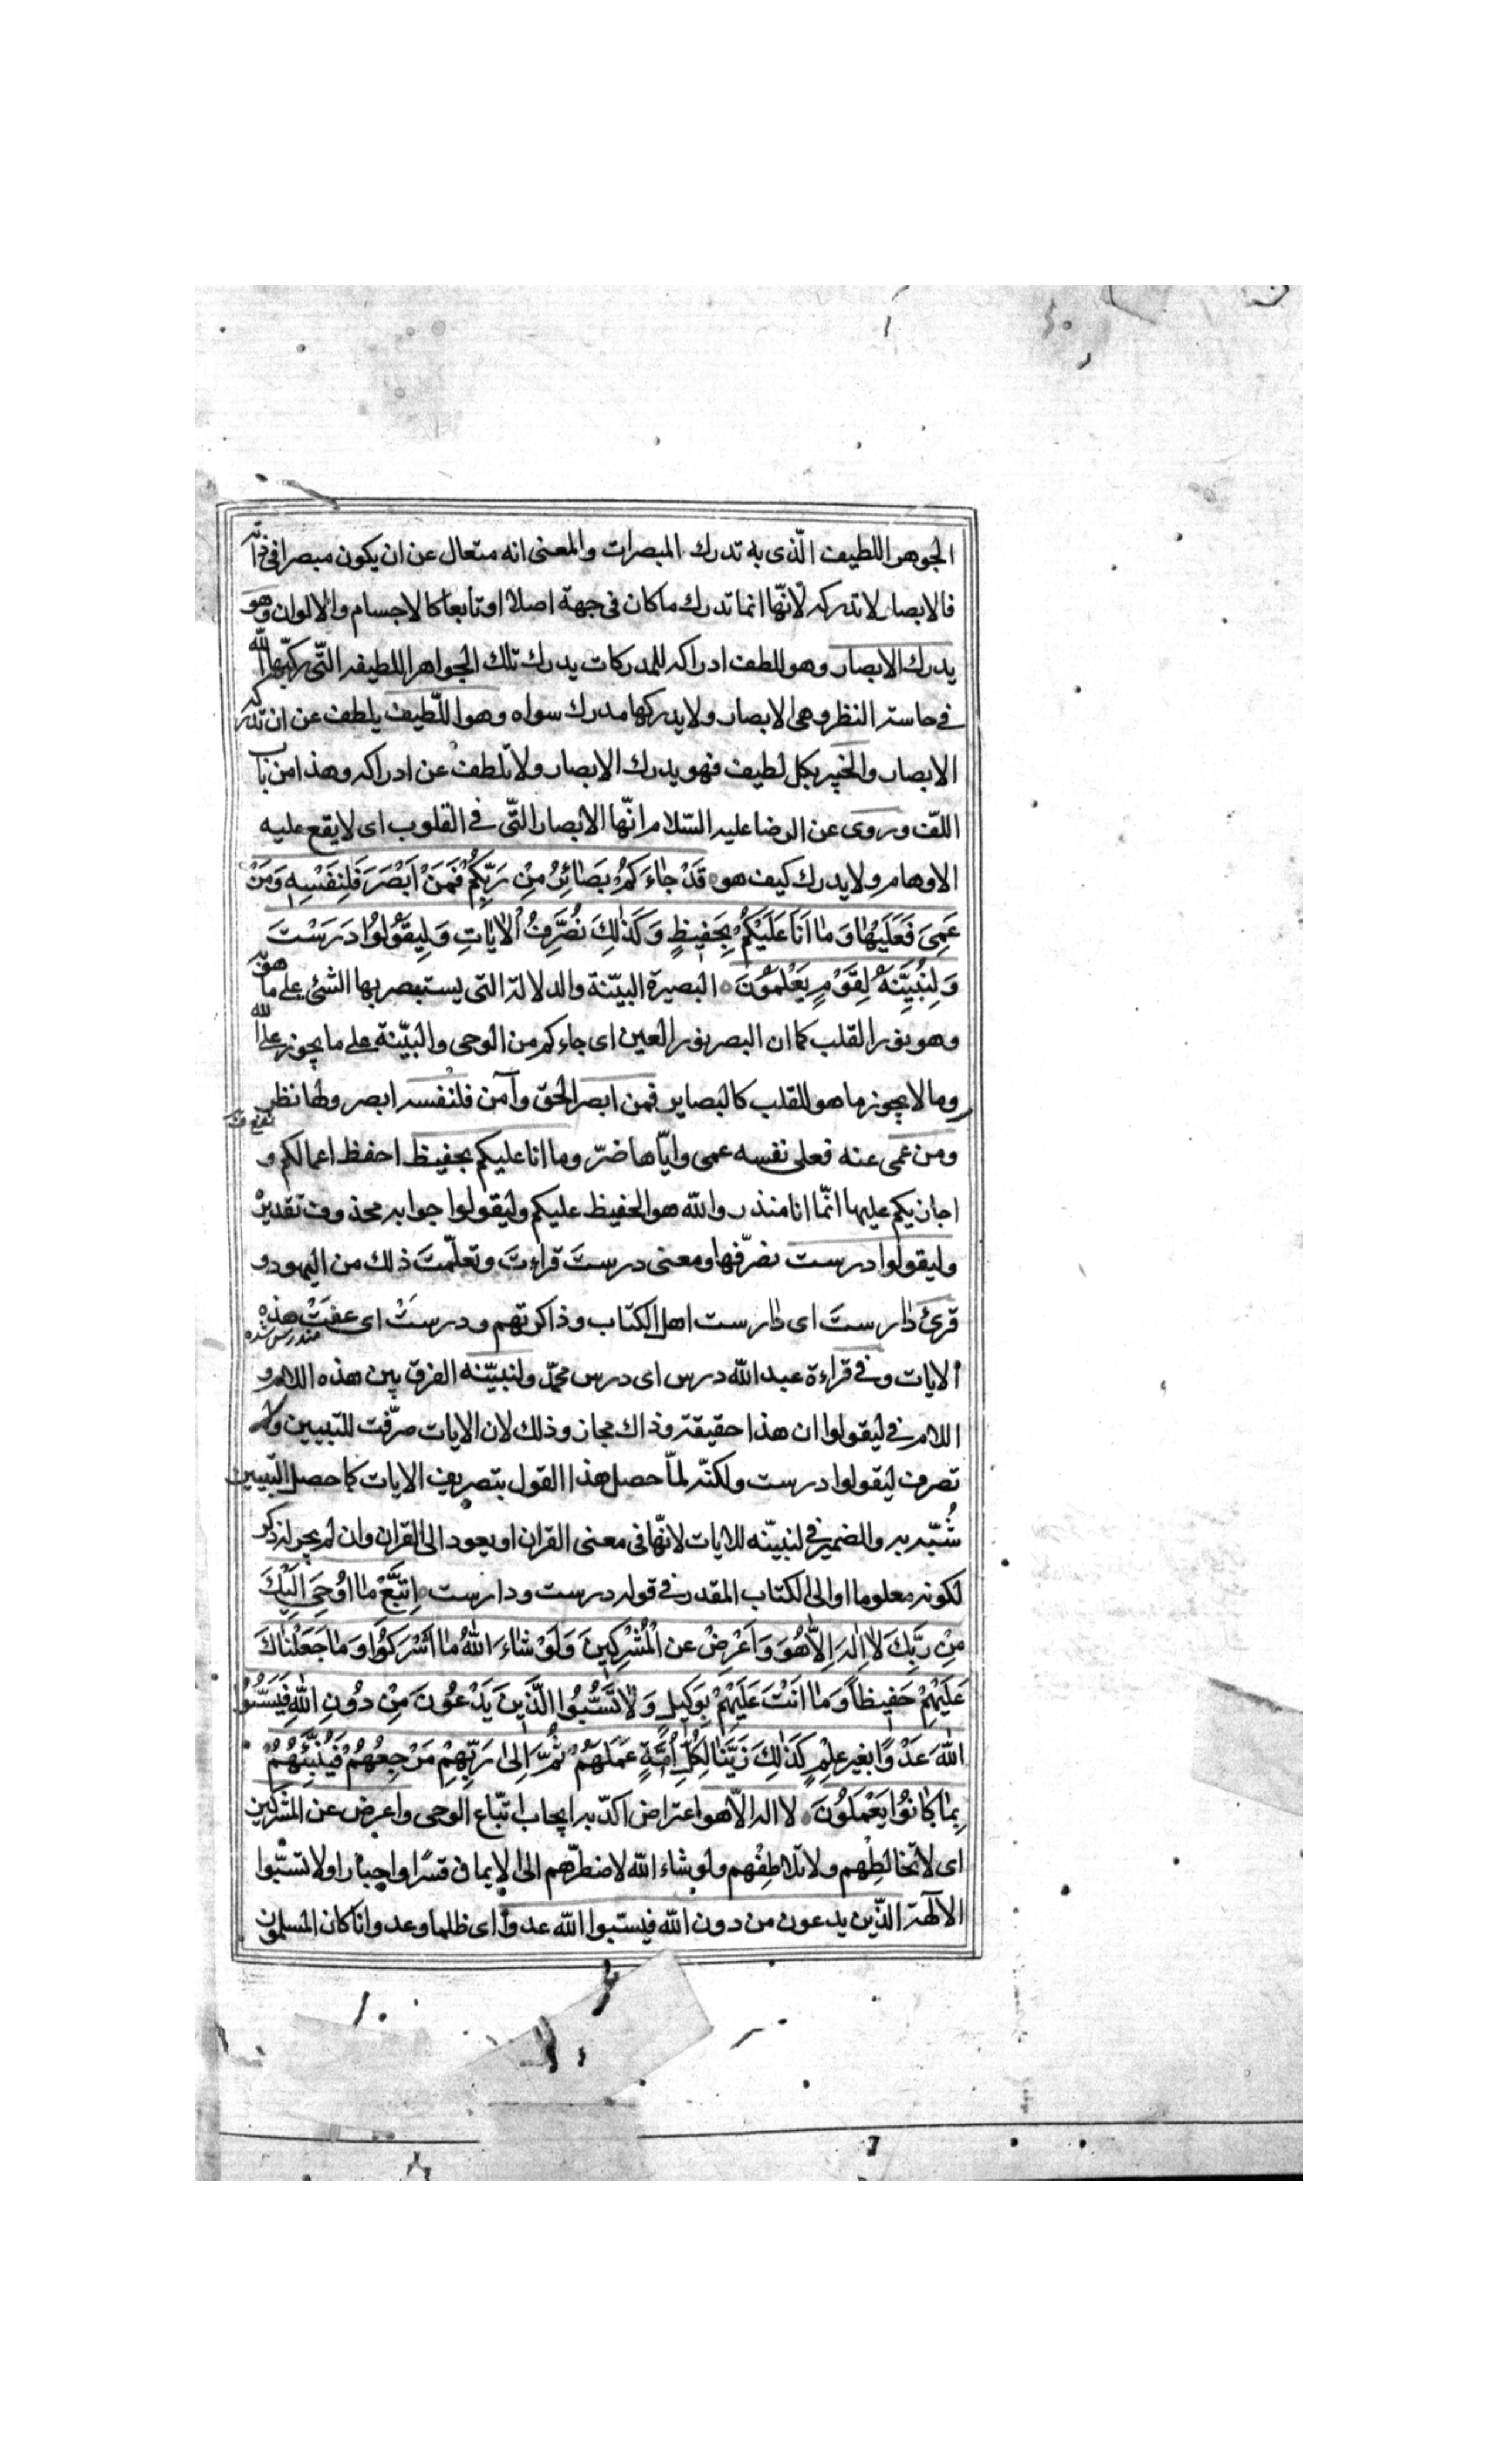 الجوهر اللطيف الّذى به تدرك المبصرات والمعنى انه متعال عن ان يكون مبصرا فى ذاته
فالابصار لا تدركه لانّها انما تدرك ما كان فى جهة اصلا او تابعا كالاجسام والالوان وهو
يدرك الابصار وهو للطف ادراكه للمدركات يدرك تلك الجواهر اللطيفه التّى ركبّها الله
فى حاسته النظر وهى الابصار ولا يدركها مدرك سواه وهو اللّطيف يلطف عن ان تدركه
الابصار والخبير بكل لطيف فهو يدرك الابصار ولا تلطف عن ادراكه وهذا من باب
اللفّ وروى عن الرضا عليه السّلام انّها الابصار التّى فى القلوب اى لا يقع عليه
الاوهام ولا يدرك كيف هو قَدْ جاءَكُمْ بَصائِرُ مِنْ رَبِّكُمْ فَمَنْ اَبْصَرَ فَلِنَفْسِهِ وَمَنْ
عَمِىَ فَعَلَيْها وَما اَنَا عَلَيْكُمْ بِحَفيظٍ وَكَذلِكَ نُصَرِّفُ الْاياتِ وَلِيَقُولُوا دَرَسْتَ
وَلِنُبَيِّنَهُ لِقَوْمٍ يَعْلَمُونَ البصيرة البيّنة والدلالة التى يستبصر بها الشئ على ما هو
وهو نور القلب كما ان البصر نور العين اى جاءكم من الوحى والبيّنة على ما يجوز على الله
وما لا يجوز ما هو للقلب كالبصاير فمن ابصر الحق وآمن فلنفسه ابصر ولها نظر
ومن عمى عنه فعلى نفسه عمى وايّاها ضرّ وما انا عليكم بحفيظ احفظ اعمالكم و
اجازيكم عليها انّما انا منذر والله هو الحفيظ عليكم وليقولوا جوابه محذوف تقديره
وليقولوا درست نصرّفها ومعنى درستَ قراءتَ وتعلّمتَ ذلك من اليهود و
قرئ دارستَ اى دارست اهل الكتاب وذاكرتهم ودرستْ اى عفتْ هذه
مندرس شده
الايات وفى قراءة عبد الله درس اى درس محمّد ولنبيّنه الفرق بين هذه اللام و
اللام فى ليقولوا ان هذا حقيقة وذاك مجاز وذلك لان الايات صرّفت للتبيين ولم
تصرف ليقولوا درست ولكنّه لمّا حصل هذا القول بتصريف الايات كما حصل التبيين
شُبّه به والضمير فى لنبيّنه للايات لانّها فى معنى القران او يعود الى القران وان لم يجر له ذكر
لكونه معلوما او الى الكتاب المقدر فى قوله درست ودارست اِتَّبِعْ ما اوُحِىَ اِلَيْكَ
مِنْ رَبِّكَ لا اِلهَ اِلاّ هُوَ وَاَعْرِضْ عن الْمُشْرِكينَ وَلَوْ شاءَ اللهُ ما اَشْرَكُوا وَما جَعَلْناكَ
عَلَيْهِمْ حَفيظاً وَما اَنْتَ عَلَيْهِمْ بِوَكيلٍ وَلا تَسُبُّوا الَّذينَ يَدْعُونَ مِنْ دُونِ اللهِ فَيَسُبُّوا
اللهَ عَدْوًا بغير علِمٍ كَذلِكَ زَيَّنّا لِكُلِّ اُمَّةٍ عَمَلَهُمْ ثُمَّ اِلى رَبِّهِمْ مَرْجِعُهُمْ فَيُنَبِّئُهُمْ
بِما كانُوا يَعْمَلُونَ لا اله الاّ هو اعتراض اكدّ به ايجاب اتّباع الوحى واعرض عن المشركين
اى لا تخالطهم ولا تلاطفهم ولو شاء الله لاضطرّهم الى الايمان قسرا واجبارا ولا تسبّوا
الالهة الّذين يدعون من دون الله فيسبّوا الله عدوا اى ظلما وعدوانا كان المسلمون